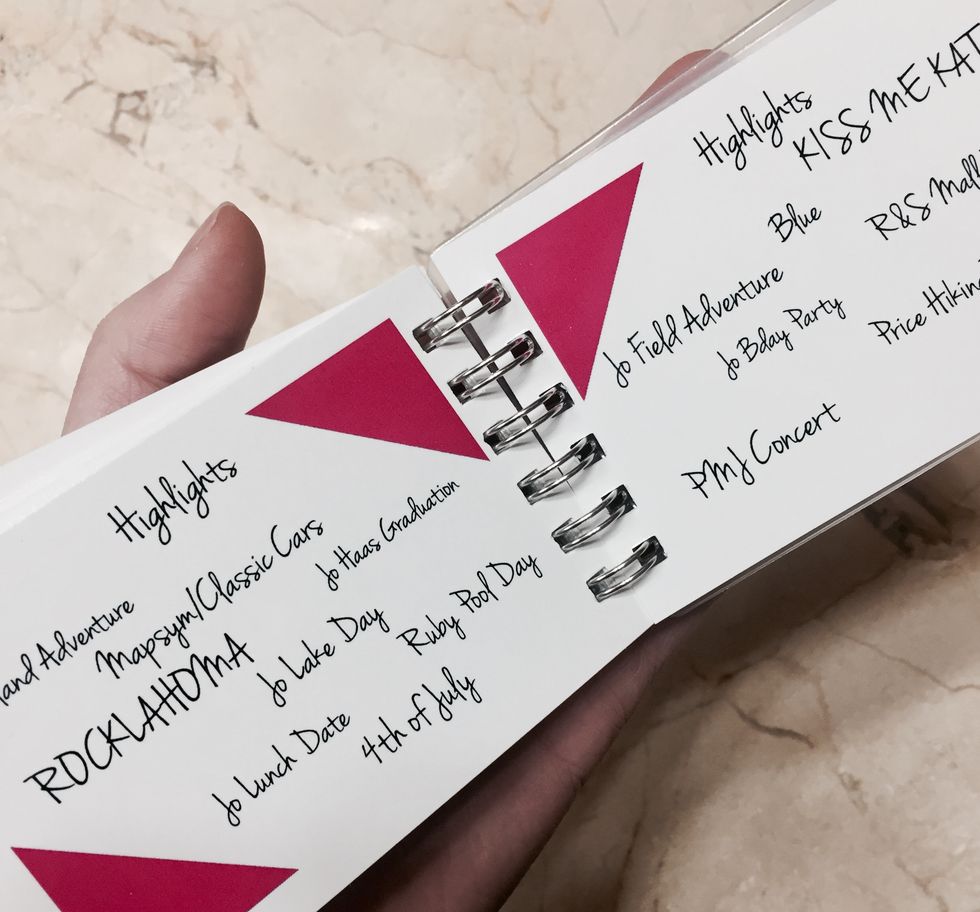 Highlights
Adventure
Mapsym/Classic Cars
Jo Haas Graduation
ROCKLAHOMA
Jo Lake Day
Ruby Pool Day
Jo Lunch Date
4th of July
Highlights
KISS ME
Blue
R&S
Jo Field Adventure
Jo Bday Party
Price
PMJ Concert